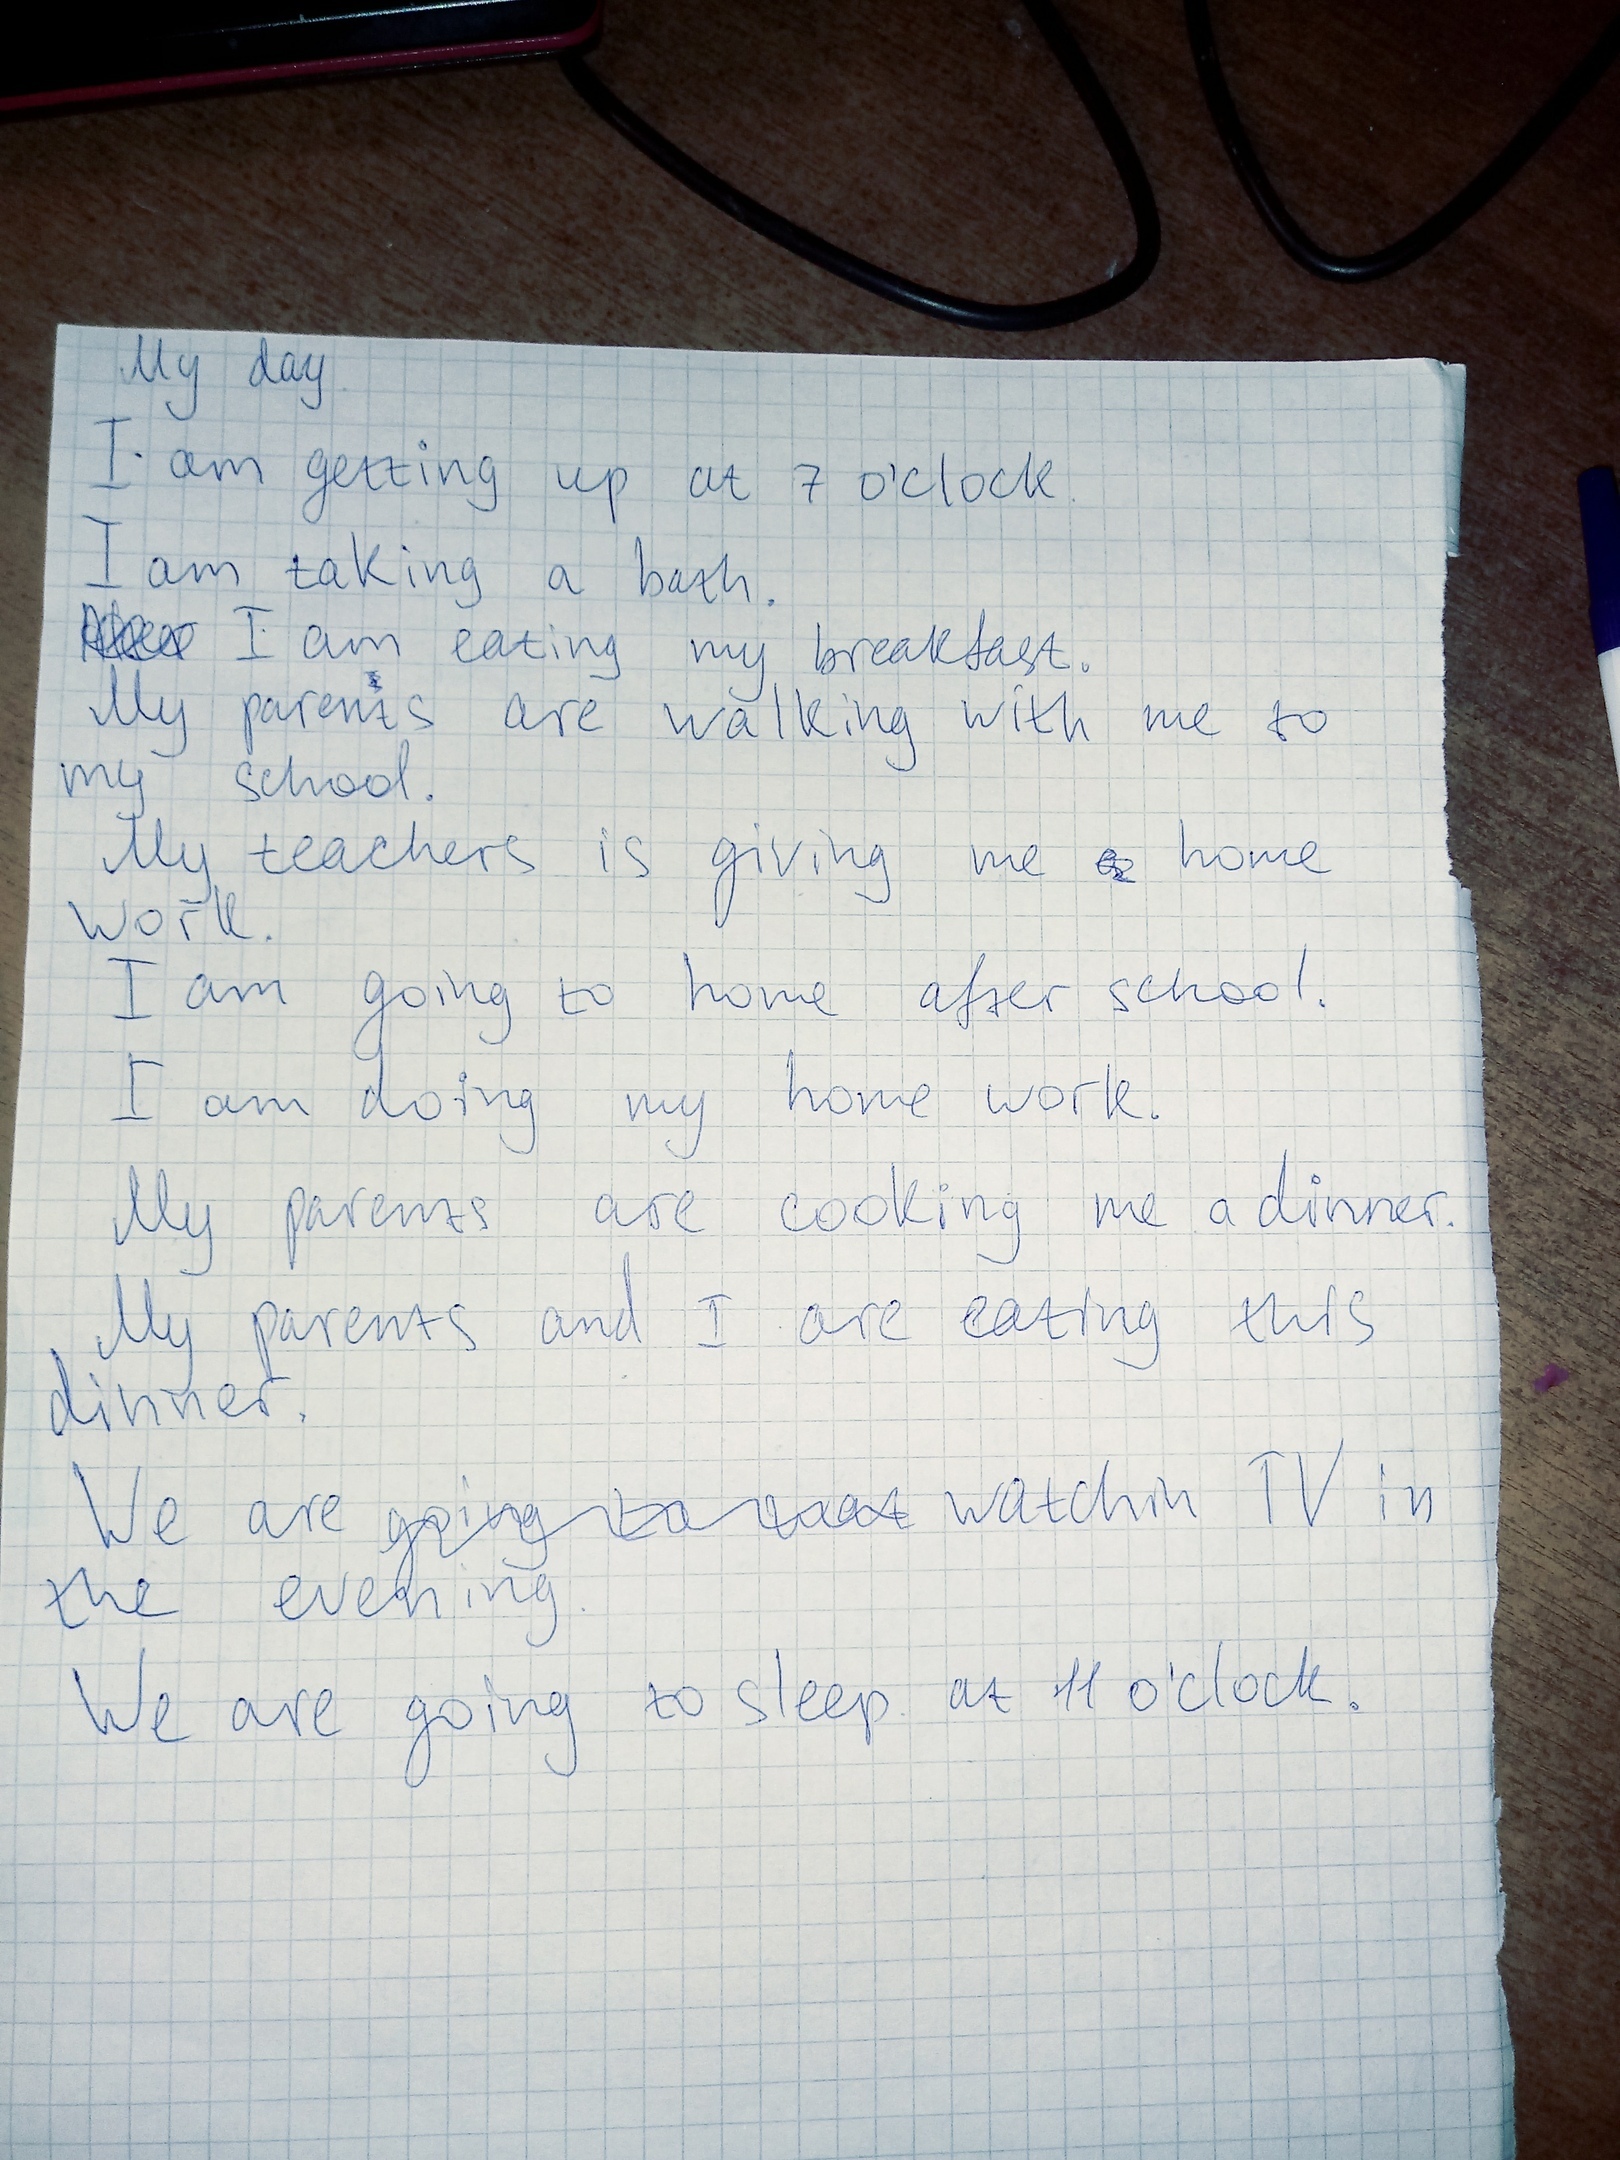 My day.
I am getting up at 7 o'clock.
I am taking a bath.
I am eating my breakfast.
My parents are walking with me to
my school.
My teachers is giving me home
work.
I am going to home after school.
I am doing my home work.
My parents are cooking me a dinner.
My parents and I are eating this
dinner.
We are going to watchin TV in
the evening.
We are going to sleep at 11 o'clock.